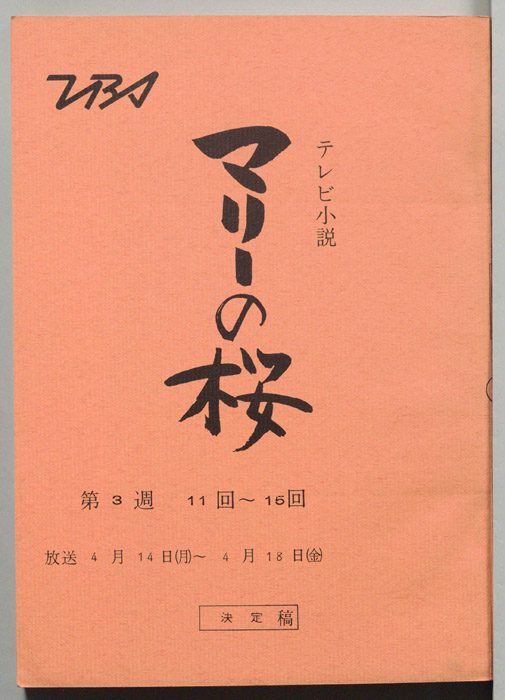 TBS
テレビ小説
マリーの桜
第3週 11回～15回
放送 4月14日(月)～4月18日(金)
決定稿